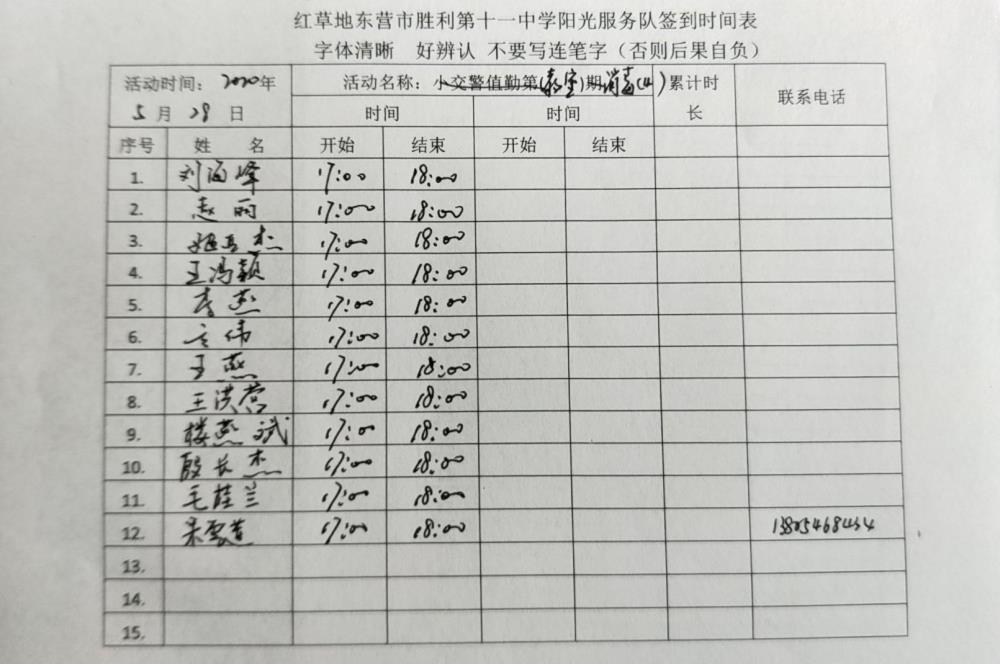 红草地东营市胜利第十一中学阳光服务队签到时间表
字体清晰 好辨认 不要写连笔字（否则后果自负）
活动时间： 2020年 5月 29日 活动名称：小交警值勤第(教室)期消毒(4) 累计时长 联系电话
时间 时间
序号 姓 名 开始 结束 开始 结束
1. 刘海峰 17:00 18:00
2. 赵丽 17:00 18:00
3. 杰 17:00 18:00
4. 王冯颖 17:00 18:00
5. 李燕 17:00 18:00
6. 伟 17:00 18:00
7. 王燕 17:00 18:00
8. 王洪营 17:00 18:00
9. 楼燕斌 17:00 18:00
10. 殷长杰 17:00 18:00
11. 毛桂兰 17:00 18:00
12. 17:00 18:00
13.
14.
15.